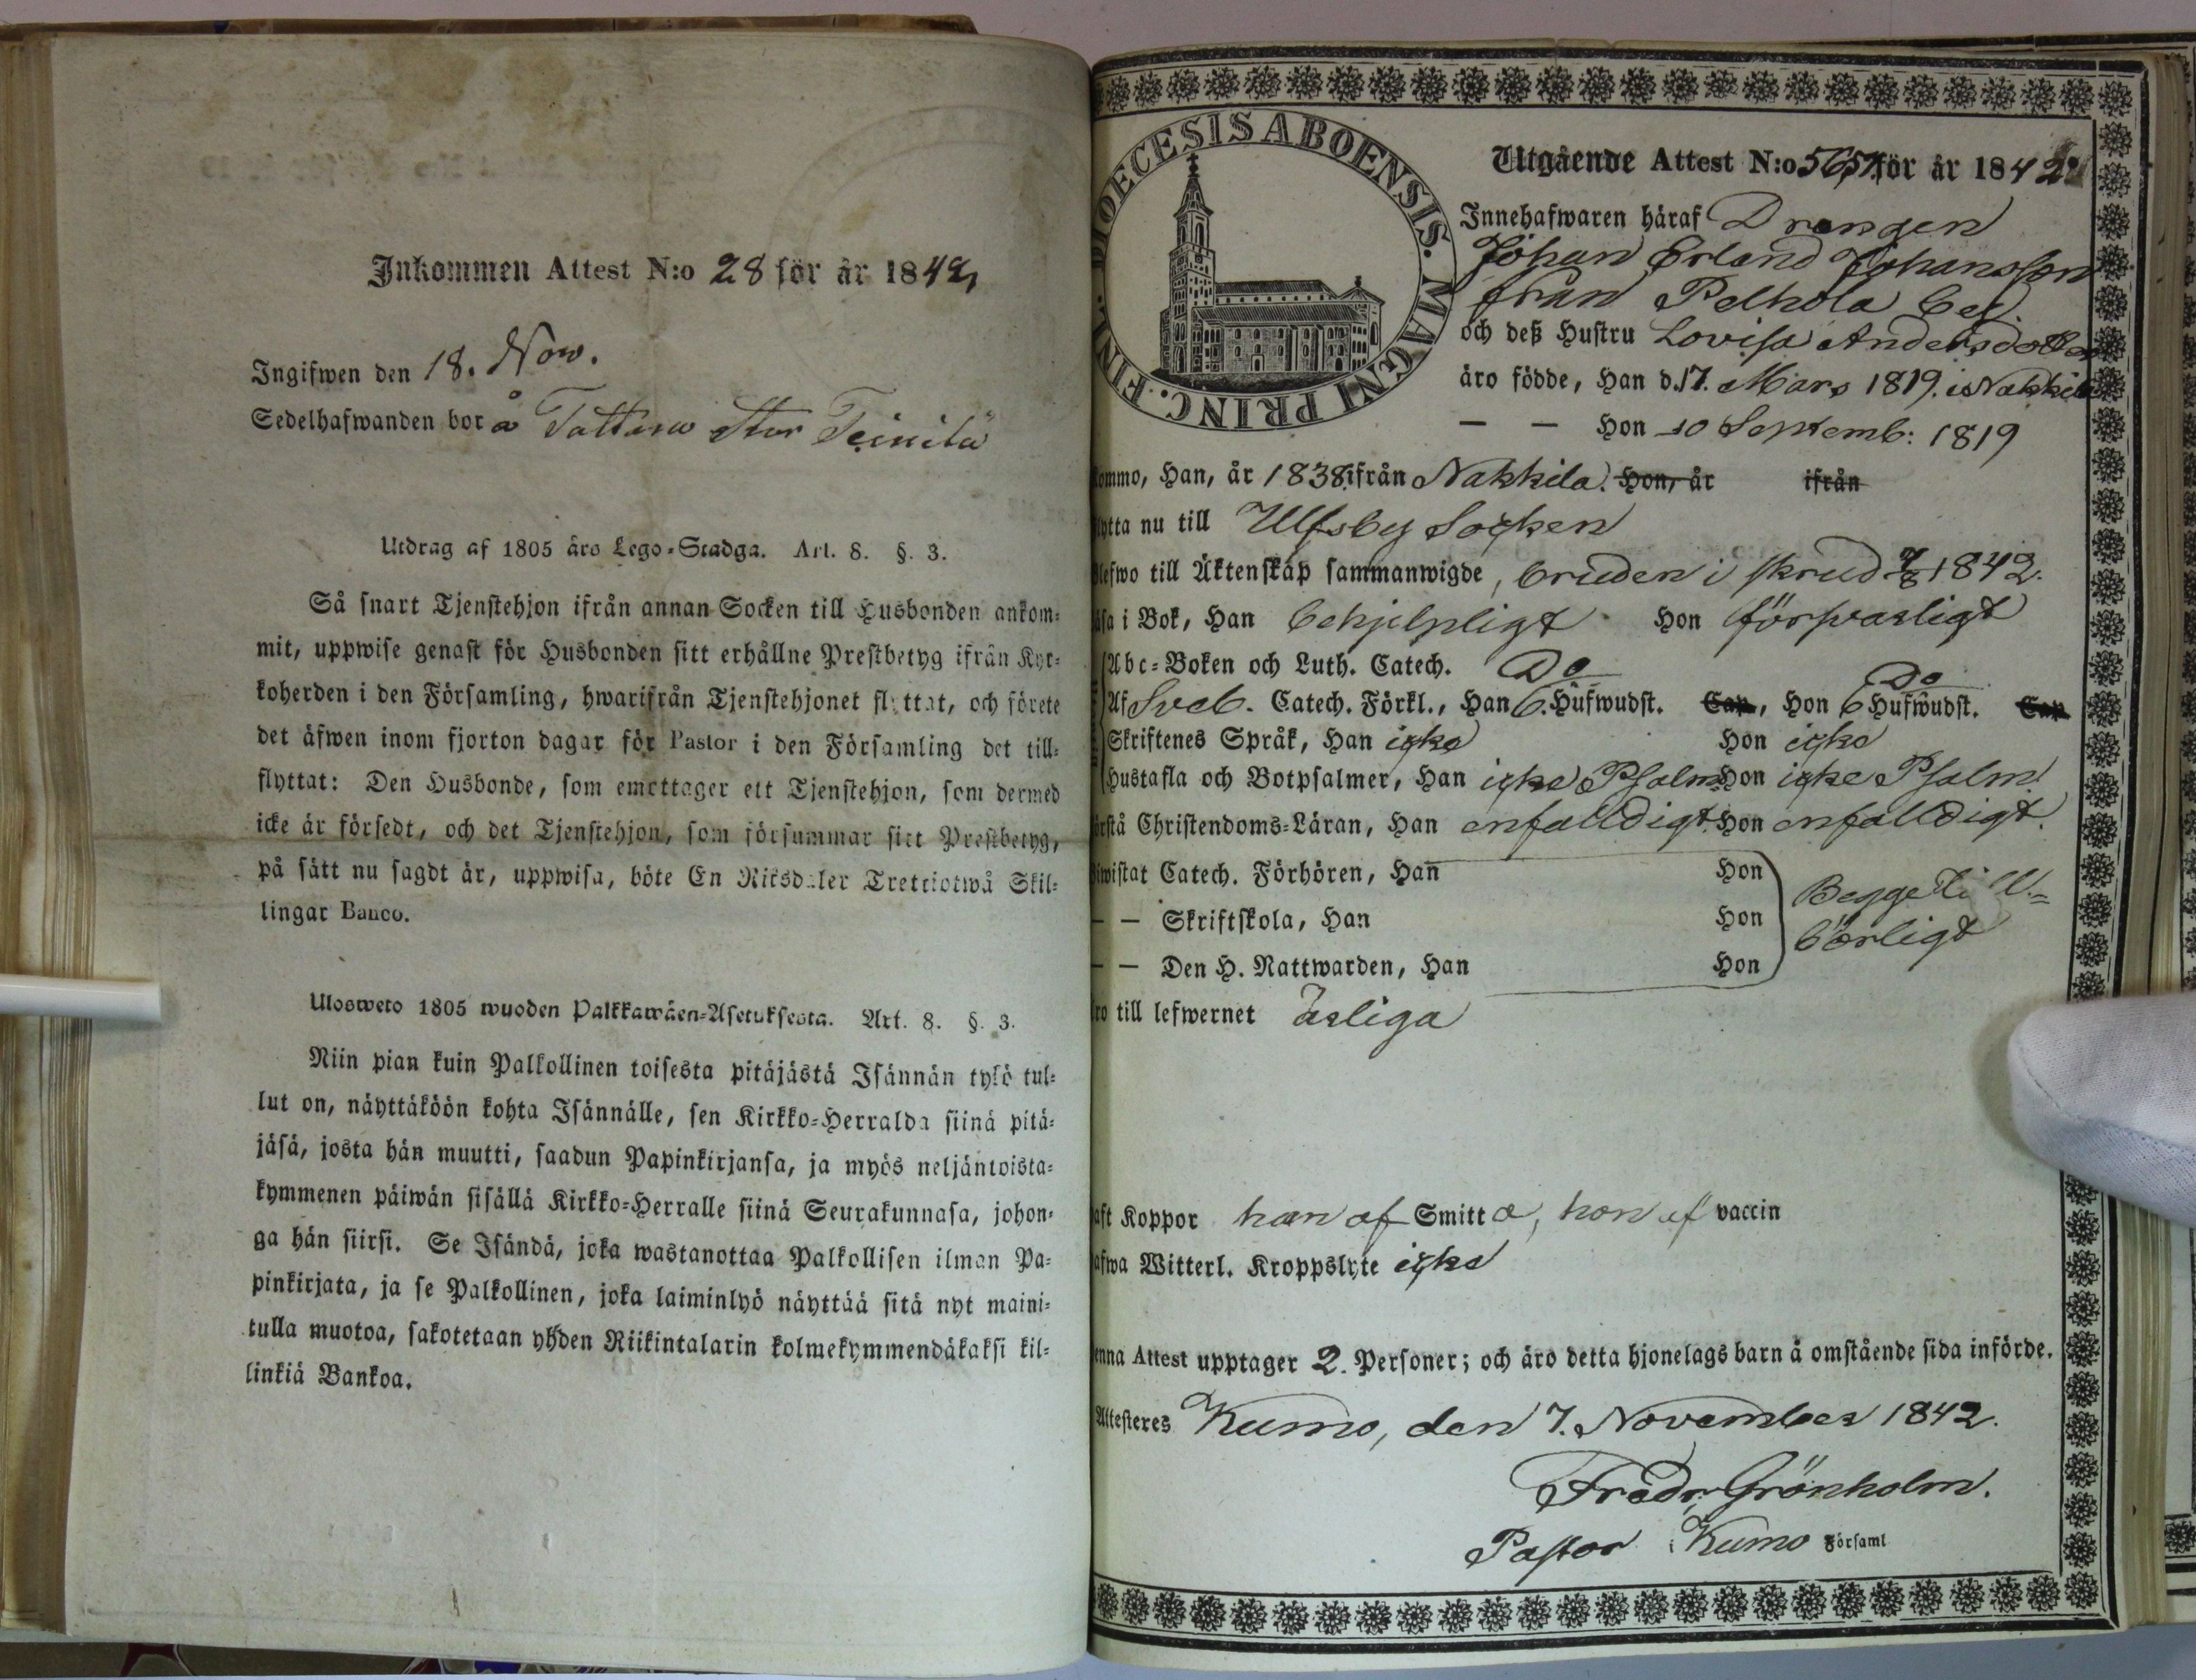 Inkommen Attest N:o 28 för år 1842
Ingifwen den 18. Nov.
Sedelhafwanden bor å Tattara Stor Teinilä
Utdrag af 1805 års Lego-Stadga. Art. 8. §. 3.
Så snart Tjenstehjon ifrån annan Socken till Husbonden ankom-
mit, uppwise genast för Husbonden sitt erhållne Prestbetyg ifrån Kyr-
koherden i den Församling, hwarifrån Tjenstehjonet flyttat, och förete
det äfwen inom fjorton dagar för Pastor i den Församling det till-
flyttat: Den Husbonde, som emottager ett Tjenstehjon, som dermed
icke är försedt, och det Tjenstehjon, som försummar sitt Prestbetyg,
på sätt nu sagdt är, uppwisa, böte En Riksdaler Trettiotwå Skil-
lingar Banco.
Ulosweto 1805 wuoden Palkkawäen-Asetuksesta. Art. 8. §. 3.
Niin pian kuin Palkollinen toisesta pitäjästä Isännän tykö tul-
lut on, näyttäköön kohta Isännälle, sen Kirkko-Herralda siinä pitä-
jäsä, josta hän muutti, saadun Papinkirjansa, ja myös neljäntoista-
kymmenen päiwän sisällä Kirkko-Herralle siinä Seurakunnasa, johon-
ga hän siirsi. Se Isändä, joka wastanottaa Palkollisen ilman Pa-
pinkirjata, ja se Palkollinen, joka laiminlyö näyttää sitä nyt maini-
tulla muotoa, sakotetaan yhden Riikintalarin kolmekymmendäkaksi kil-
linkiä Bankoa.
DIOECESIS ABOENSIS. MAGNI PRINC. FINL.
Utgående Attest N:o 565 för år 1842
Innehafwaren häraf Drengen
Johan Erland Johansson
från Pelhola by
och deß Hustru Lovisa Andersdotter
äro födde, Han d. 17. Mars 1819. i Nakkila
— — Hon 10 Septemb: 1819
kommo, Han, år 1838 ifrån Nakkila. Hon, år ifrån
flytta nu till Ulfsby Socken
blefwo till Äktenskap sammanwigde, bruden i skrud 7/8 1842.
läsa i Bok, Han behjelpligt Hon försvarligt
Abc-Boken och Luth. Catech. Do Do
Af Sveb. Catech. Förkl., Han 6. Hufwudst. Cap., Hon 6 Hufwudst. Cap
Skriftenes Språk, Han icke Hon icke
Hustafla och Botpsalmer, Han icke Psalm. Hon icke Psalm.
förstå Christendoms-Läran, Han enfalldigt. Hon enfalldigt.
biwistat Catech. Förhören, Han Hon
— — Skriftskola, Han Hon
— — Den H. Nattwarden, Han Hon
Begge till-
börligt
äro till lefwernet ärliga
haft Koppor han af Smitta, hon af vaccin
hafwa Witterl. Kroppslyte icke
Denna Attest upptager 2. Personer; och äro detta hjonelags barn å omstående sida införde.
Attesteres Kumo, den 7. November 1842.
Fredr. Grönholm.
Pastor i Kumo Församl